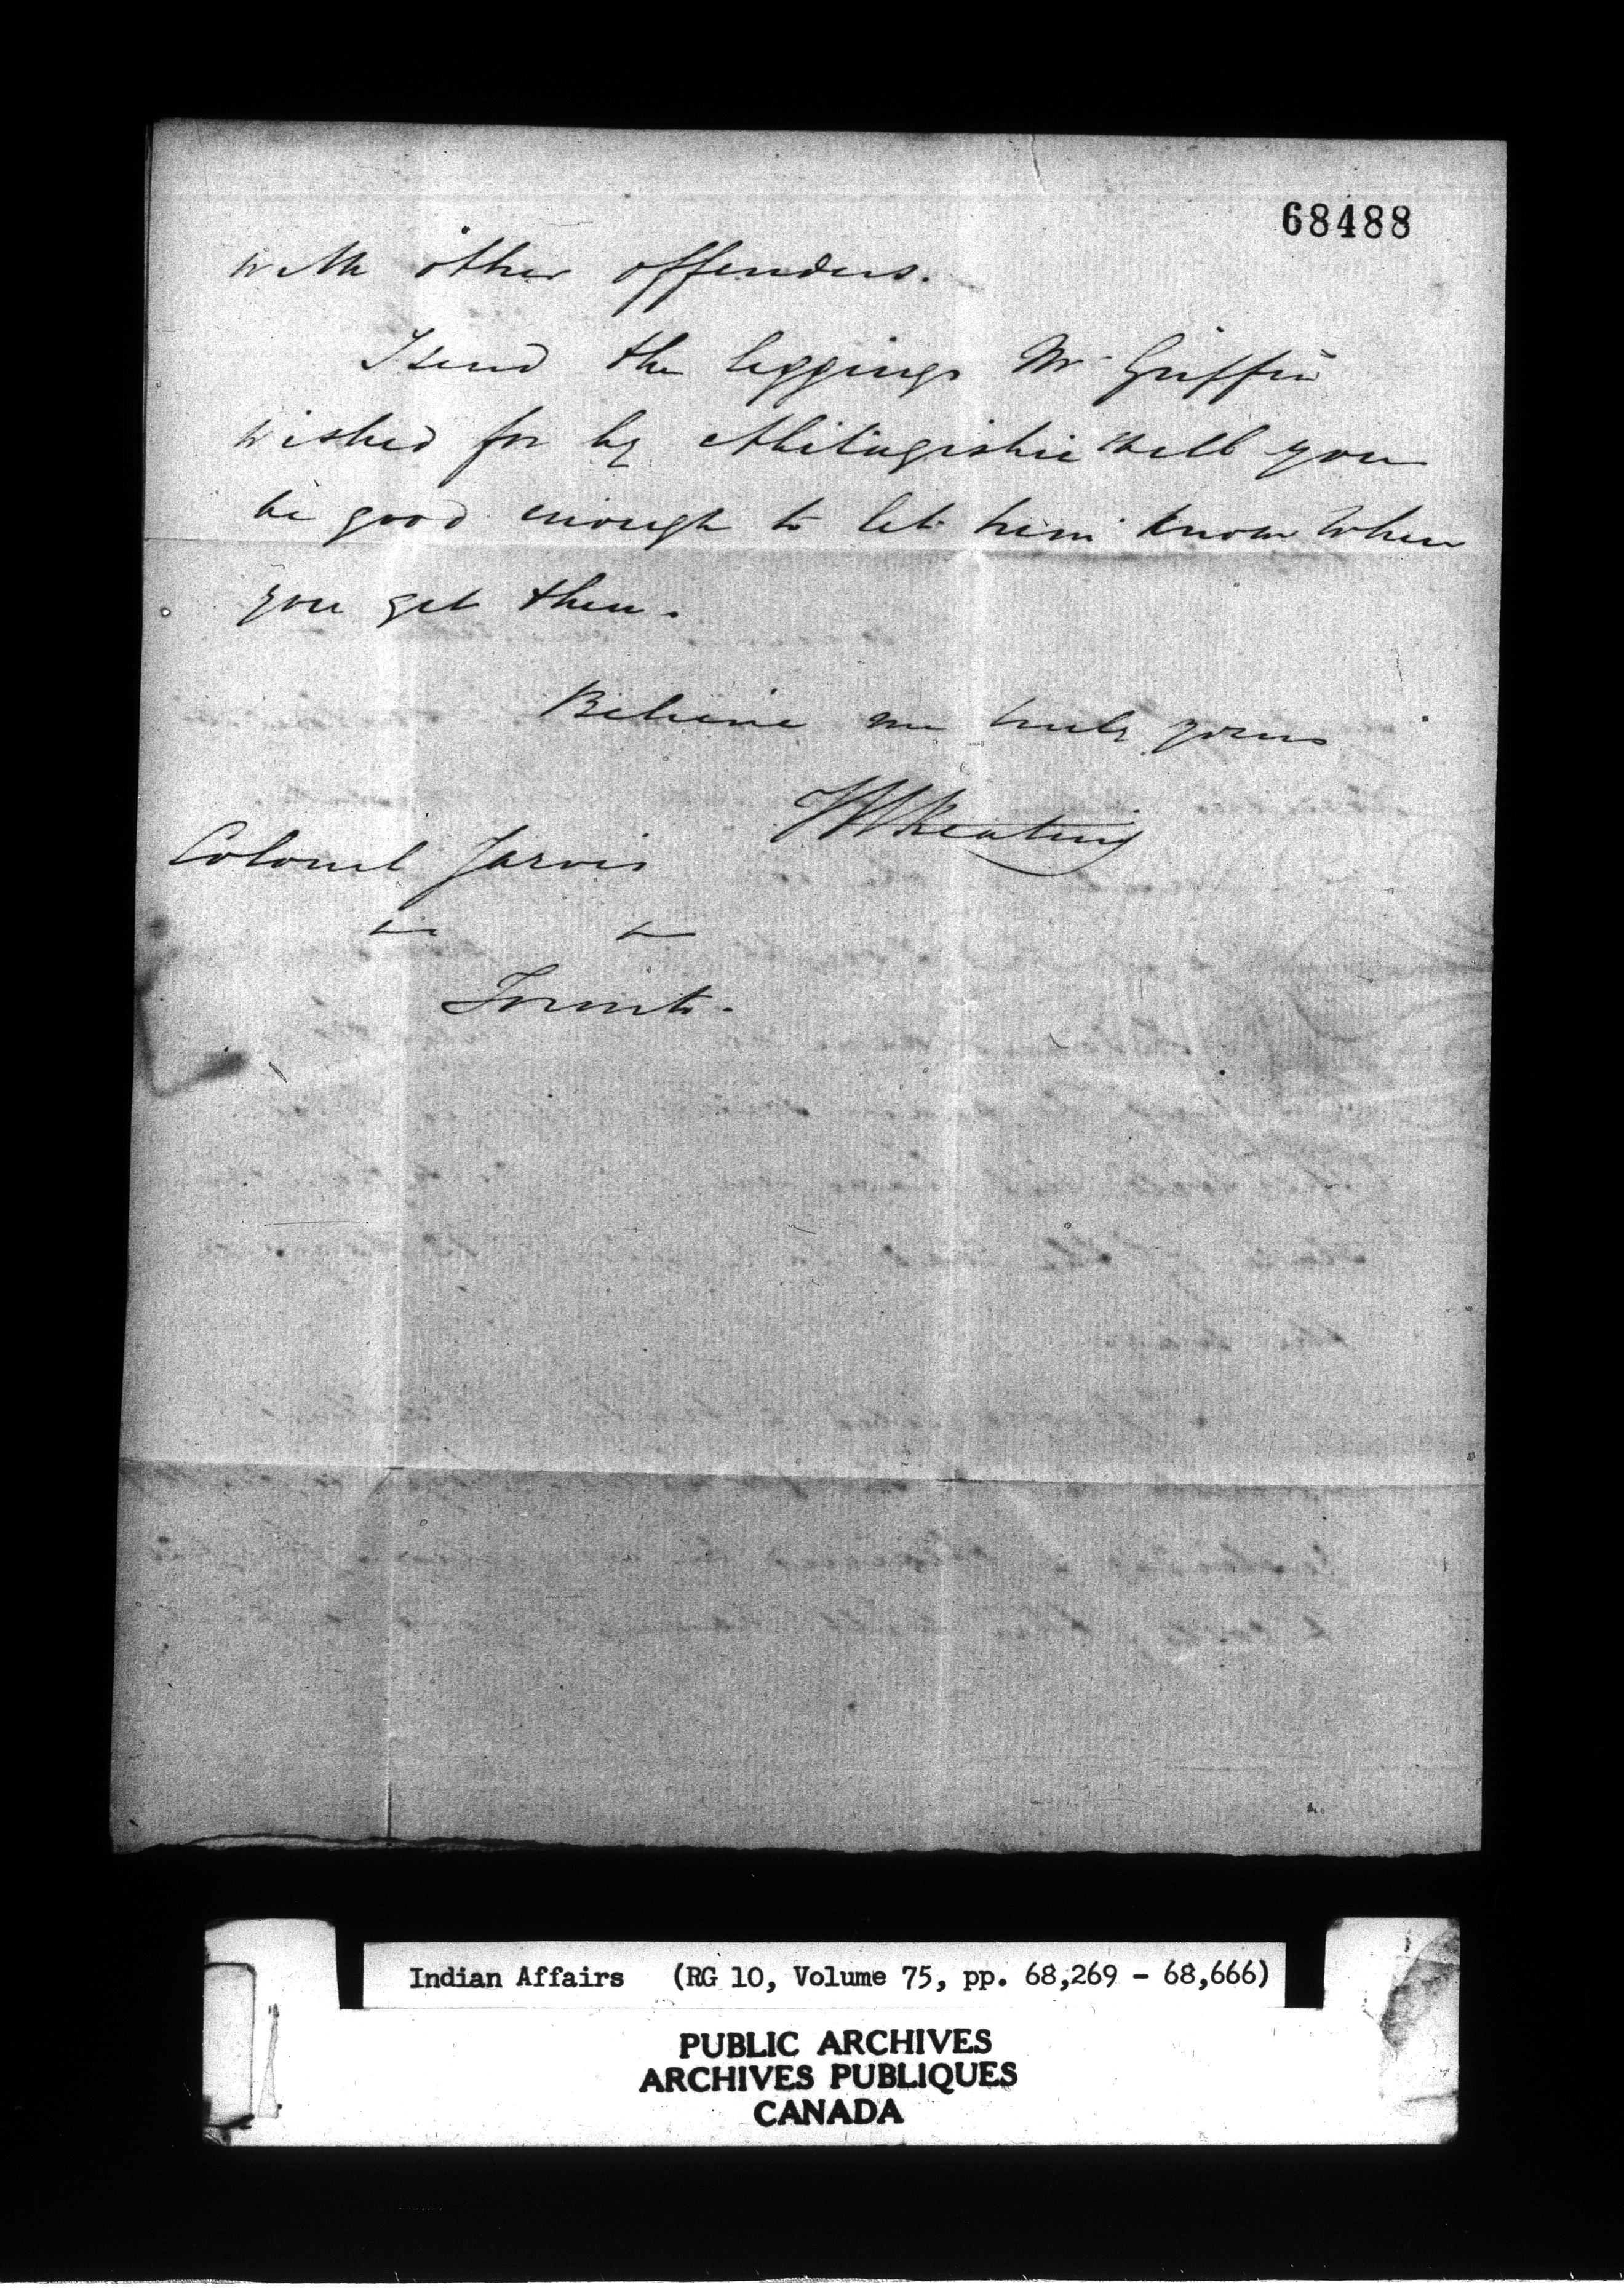 68488
with other offenders.
I send the leggings Mr Griffin
wished for by will you
be good enough to let him know when
you get them.
Believe me truly yours
JWKeating
Colonel Jarvis
Toronto.
Indian Affairs (RG 10, Volume 75, pp. 68,269 - 68,666)
PUBLIC ARCHIVES
ARCHIVES PUBLIQUES
CANADA